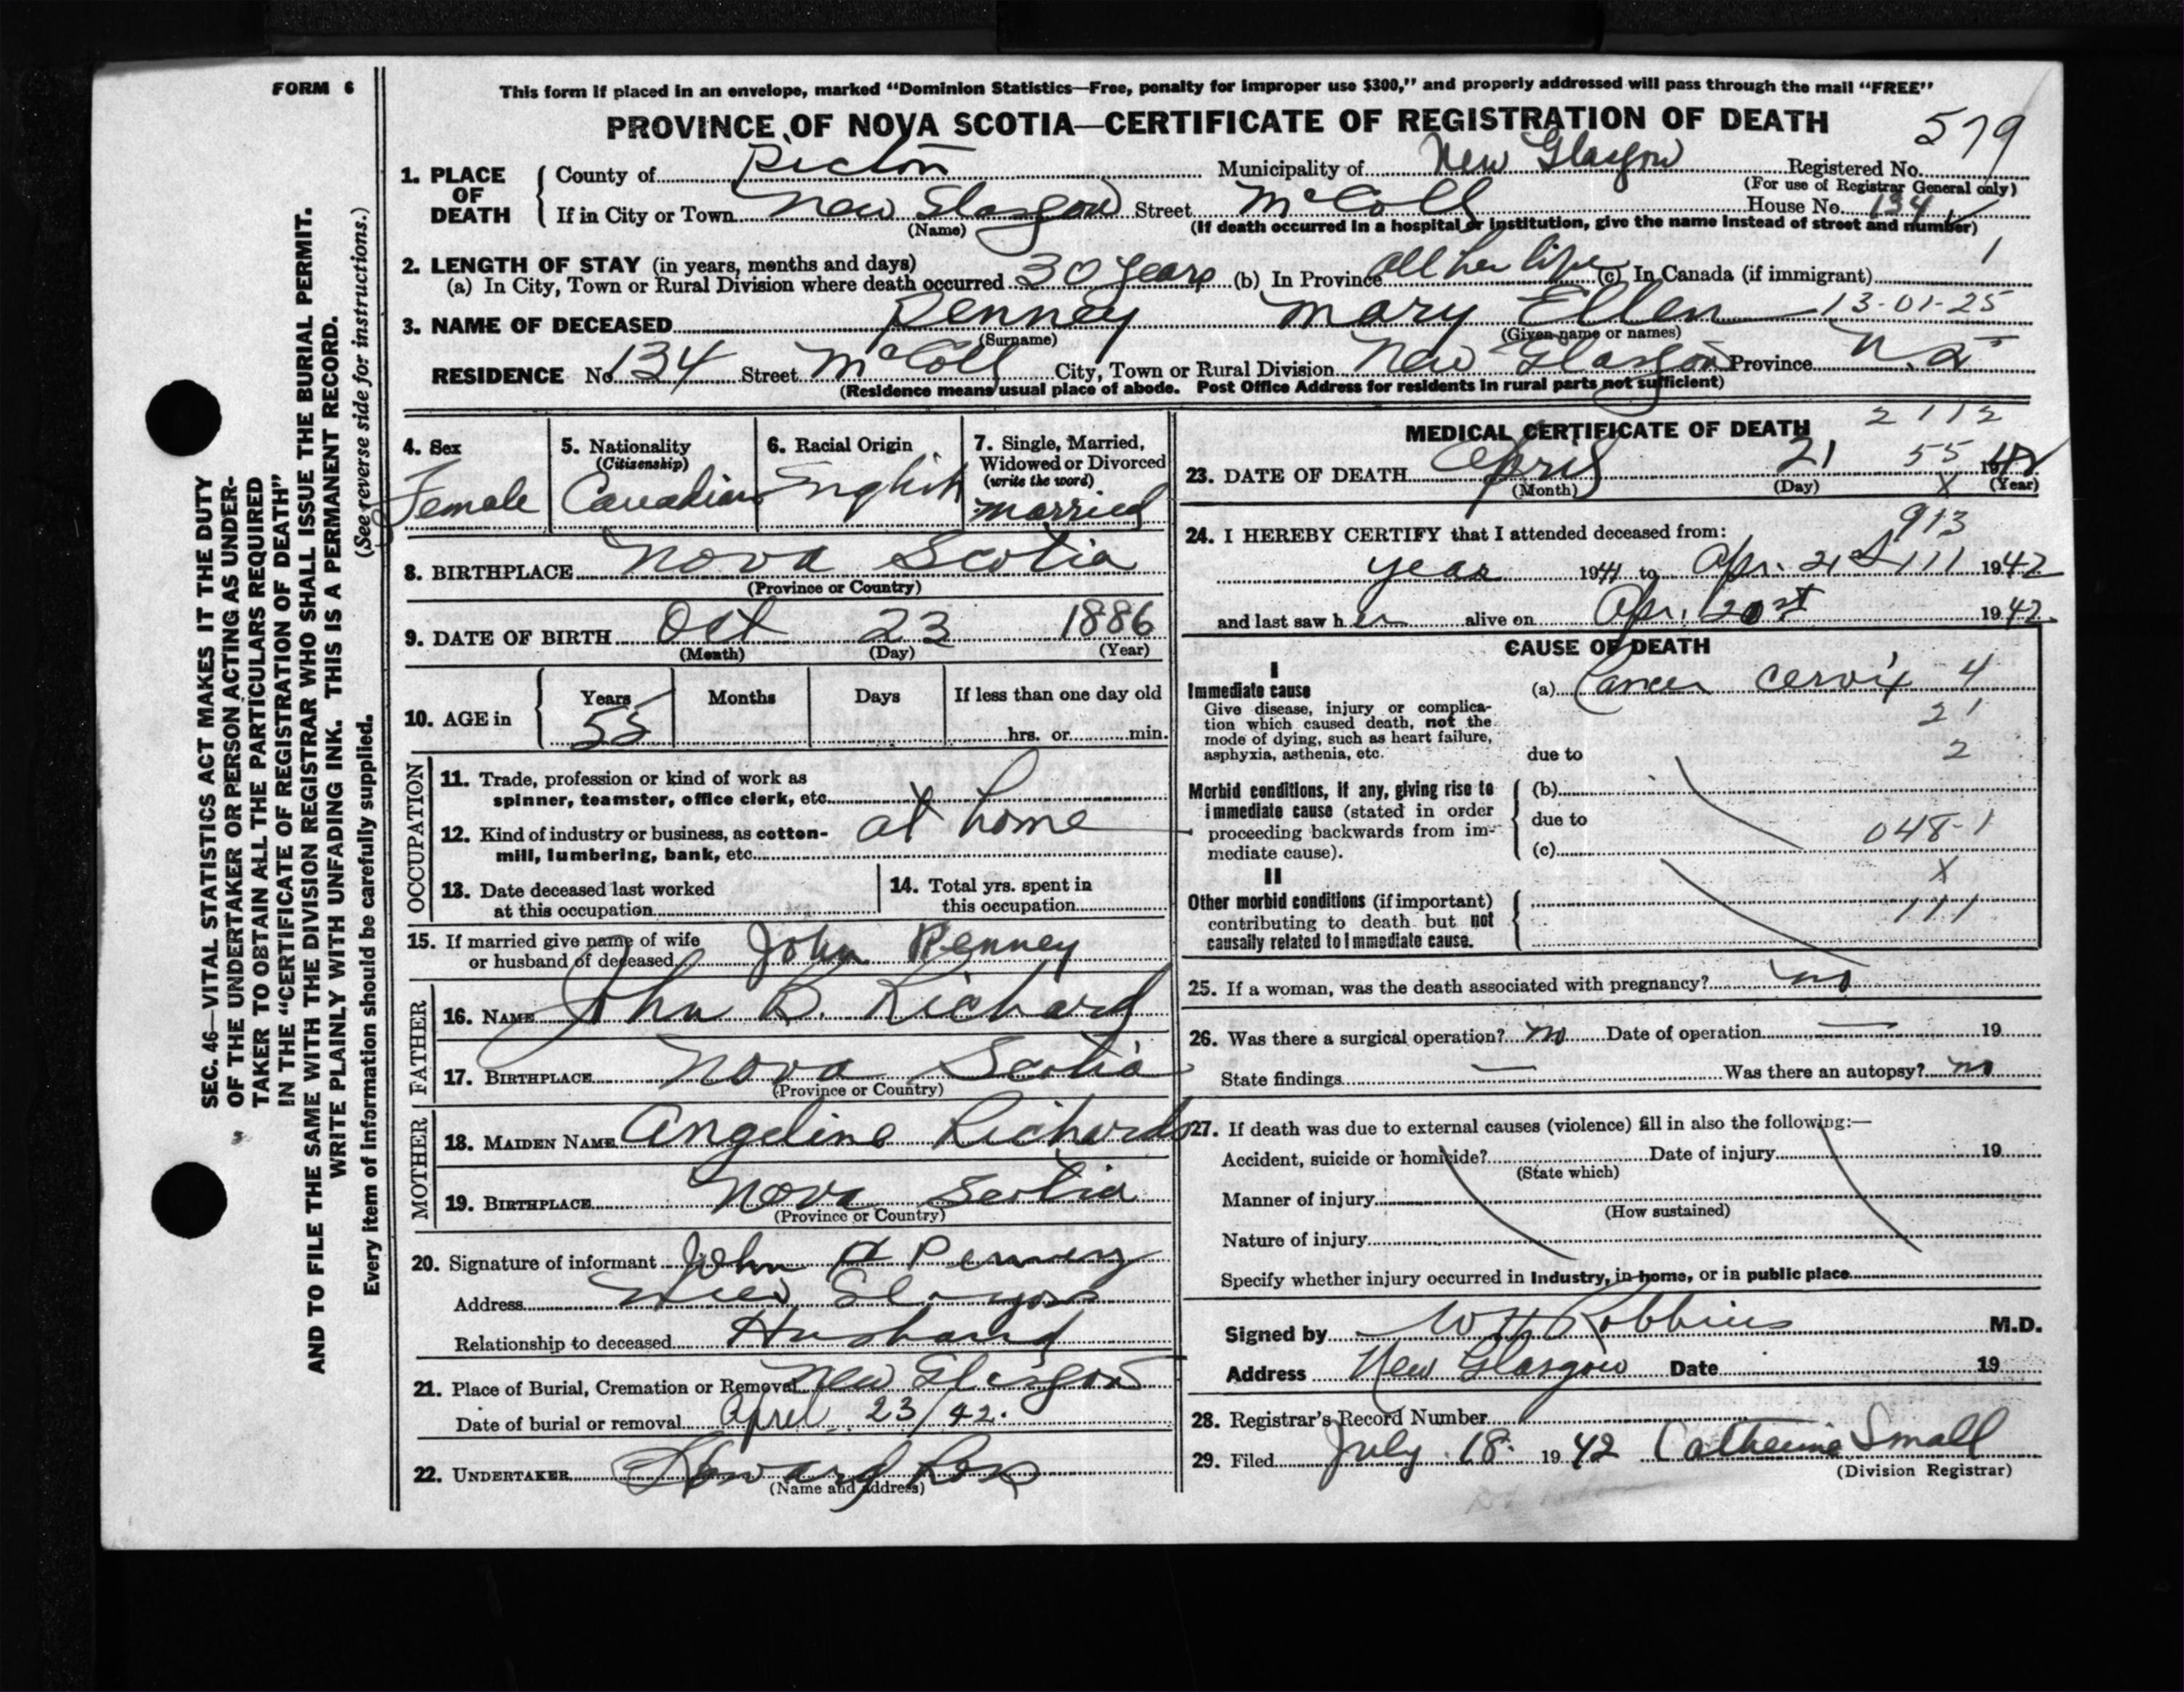 FORM 6
This form if placed in an envelope, marked "Dominion Statistics—Free, penalty for improper use $300," and properly addressed will pass through the mail "FREE"
PROVINCE OF NOVA SCOTIA—CERTIFICATE OF REGISTRATION OF DEATH
579
1. PLACE OF DEATH County of Pictou Municipality of New Glasgow Registered No.
(For use of Registrar General only)
If in City or Town New Glasgow Street McColl House No. 134
(Name) (If death occurred in a hospital or institution, give the name instead of street and number)
2. LENGTH OF STAY (in years, months and days) 1
(a) In City, Town or Rural Division where death occurred 30 years (b) In Province all her life (c) In Canada (if immigrant)
3. NAME OF DECEASED Penney Mary Ellen 13-01-25
(Surname) (Given name or names)
RESIDENCE No. 134 Street McColl City, Town or Rural Division New Glasgow Province N.S.
(Residence means usual place of abode. Post Office Address for residents in rural parts not sufficient)
4. Sex
Female
5. Nationality
(Citizenship)
Canadian
6. Racial Origin
English
7. Single, Married,
Widowed or Divorced
(write the word)
married
8. BIRTHPLACE Nova Scotia
(Province or Country)
9. DATE OF BIRTH Oct 23 1886
(Month) (Day) (Year)
10. AGE in Years Months Days If less than one day old
55 hrs. or min.
OCCUPATION
11. Trade, profession or kind of work as
spinner, teamster, office clerk, etc.
12. Kind of industry or business, as cotton- at home
mill, lumbering, bank, etc.
13. Date deceased last worked
at this occupation
14. Total yrs. spent in
this occupation
15. If married give name of wife
or husband of deceased John Penney
FATHER
16. NAME John B. Richard
17. BIRTHPLACE Nova Scotia
(Province or Country)
MOTHER
18. MAIDEN NAME Angeline Richards
19. BIRTHPLACE Nova Scotia
(Province or Country)
20. Signature of informant John A Penney
Address New Glasgow
Relationship to deceased Husband
21. Place of Burial, Cremation or Removal New Glasgow
Date of burial or removal April 23/42.
22. UNDERTAKER Howard Ross
(Name and address)
2 1 1 2
MEDICAL CERTIFICATE OF DEATH
23. DATE OF DEATH April 21 55 1942
(Month) (Day) X (Year)
913
24. I HEREBY CERTIFY that I attended deceased from:
year 1941 to Apr. 21st 111 1942
and last saw her alive on Apr. 20st 1942
CAUSE OF DEATH
I
Immediate cause (a) Cancer cervix 4
Give disease, injury or complica-
tion which caused death, not the 21
mode of dying, such as heart failure,
asphyxia, asthenia, etc. due to 2
Morbid conditions, if any, giving rise to (b)
immediate cause (stated in order due to
proceeding backwards from im- 048-1
mediate cause). (c)
II X
Other morbid conditions (if important) 111
contributing to death but not
causally related to immediate cause.
25. If a woman, was the death associated with pregnancy? no
26. Was there a surgical operation? no Date of operation — 19
State findings — Was there an autopsy? no
27. If death was due to external causes (violence) fill in also the following:—
Accident, suicide or homicide? Date of injury 19
(State which)
Manner of injury
(How sustained)
Nature of injury
Specify whether injury occurred in Industry, in home, or in public place
Signed by W H Robbins M.D.
Address New Glasgow Date 19
28. Registrar's Record Number
29. Filed July 18 1942 Catherine Small
(Division Registrar)
SEC. 46—VITAL STATISTICS ACT MAKES IT THE DUTY
OF THE UNDERTAKER OR PERSON ACTING AS UNDER-
TAKER TO OBTAIN ALL THE PARTICULARS REQUIRED
IN THE "CERTIFICATE OF REGISTRATION OF DEATH"
AND TO FILE THE SAME WITH THE DIVISION REGISTRAR WHO SHALL ISSUE THE BURIAL PERMIT.
WRITE PLAINLY WITH UNFADING INK. THIS IS A PERMANENT RECORD.
(See reverse side for instructions.)
Every item of information should be carefully supplied.